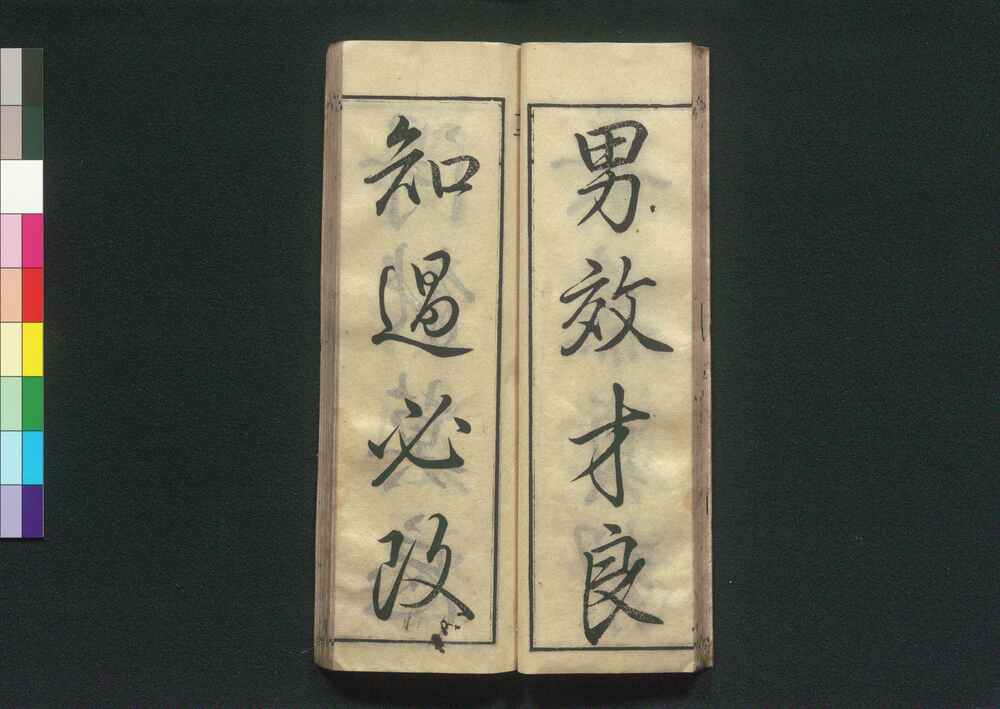 男效才良
知過必改